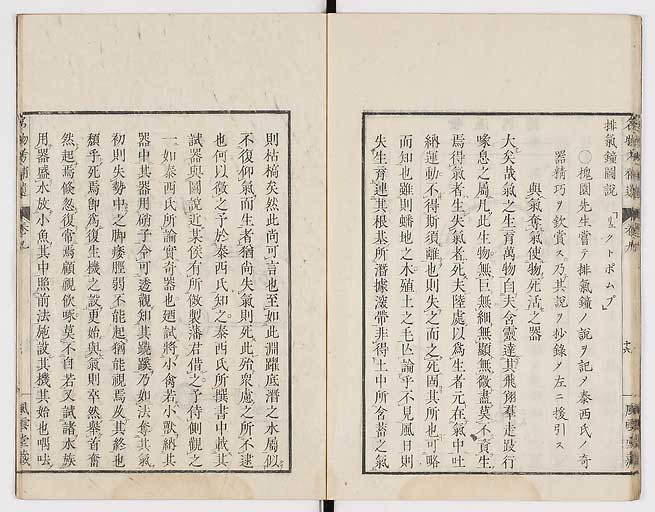 排氣鐘圖說 「リュクトポムプ」
〇槐園先生嘗テ排氣鐘ノ說ヲ記ノ泰西氏ノ奇
器精巧ヲ欽賞ス乃其說ヲ抄錄ノ左ニ援引ス
與氣奪氣使物死活之器
大矣哉氣之生育萬物自夫含靈達其飛翔羣走跂行
喙息之屬凡此生物無巨無細無顯無微盡莫不資生
焉得氣者生失氣者死夫陸處以爲生者元在氣中吐
納運動不得斯須離也則失之而之死固其所也可略
而知也雖則蟠地之木殖土之毛匕論乎不見風日則
失生育連其根基所潛據滋蒂非得土中所含蓄之氣
則枯槁矣然此尚可言也至如此淵躍底潛之水屬似
不復仰氣而生者猶尚失氣則死此殆衆慮之所不逮
也何以徵之予於泰西氏知之泰西氏所撰書中載其
試器與圖說近某侯有所倣製藩君借之予侍側觀之
一如泰西氏所論實奇器也廼試將小禽若小獸納其
器中其器用硝子令可透觀知其蹺蹊乃如法奪其氣
初則失勢中之脚痿脛弱不能起猶能視焉及其終也
頽乎死焉卽爲復生機之設更始與氣則卒然擧首奮
然起焉倐忽復常焉顧視飮啄莫不自若又試諸水族
用器盛水放小魚其中照前法施設其機其始也喁呿